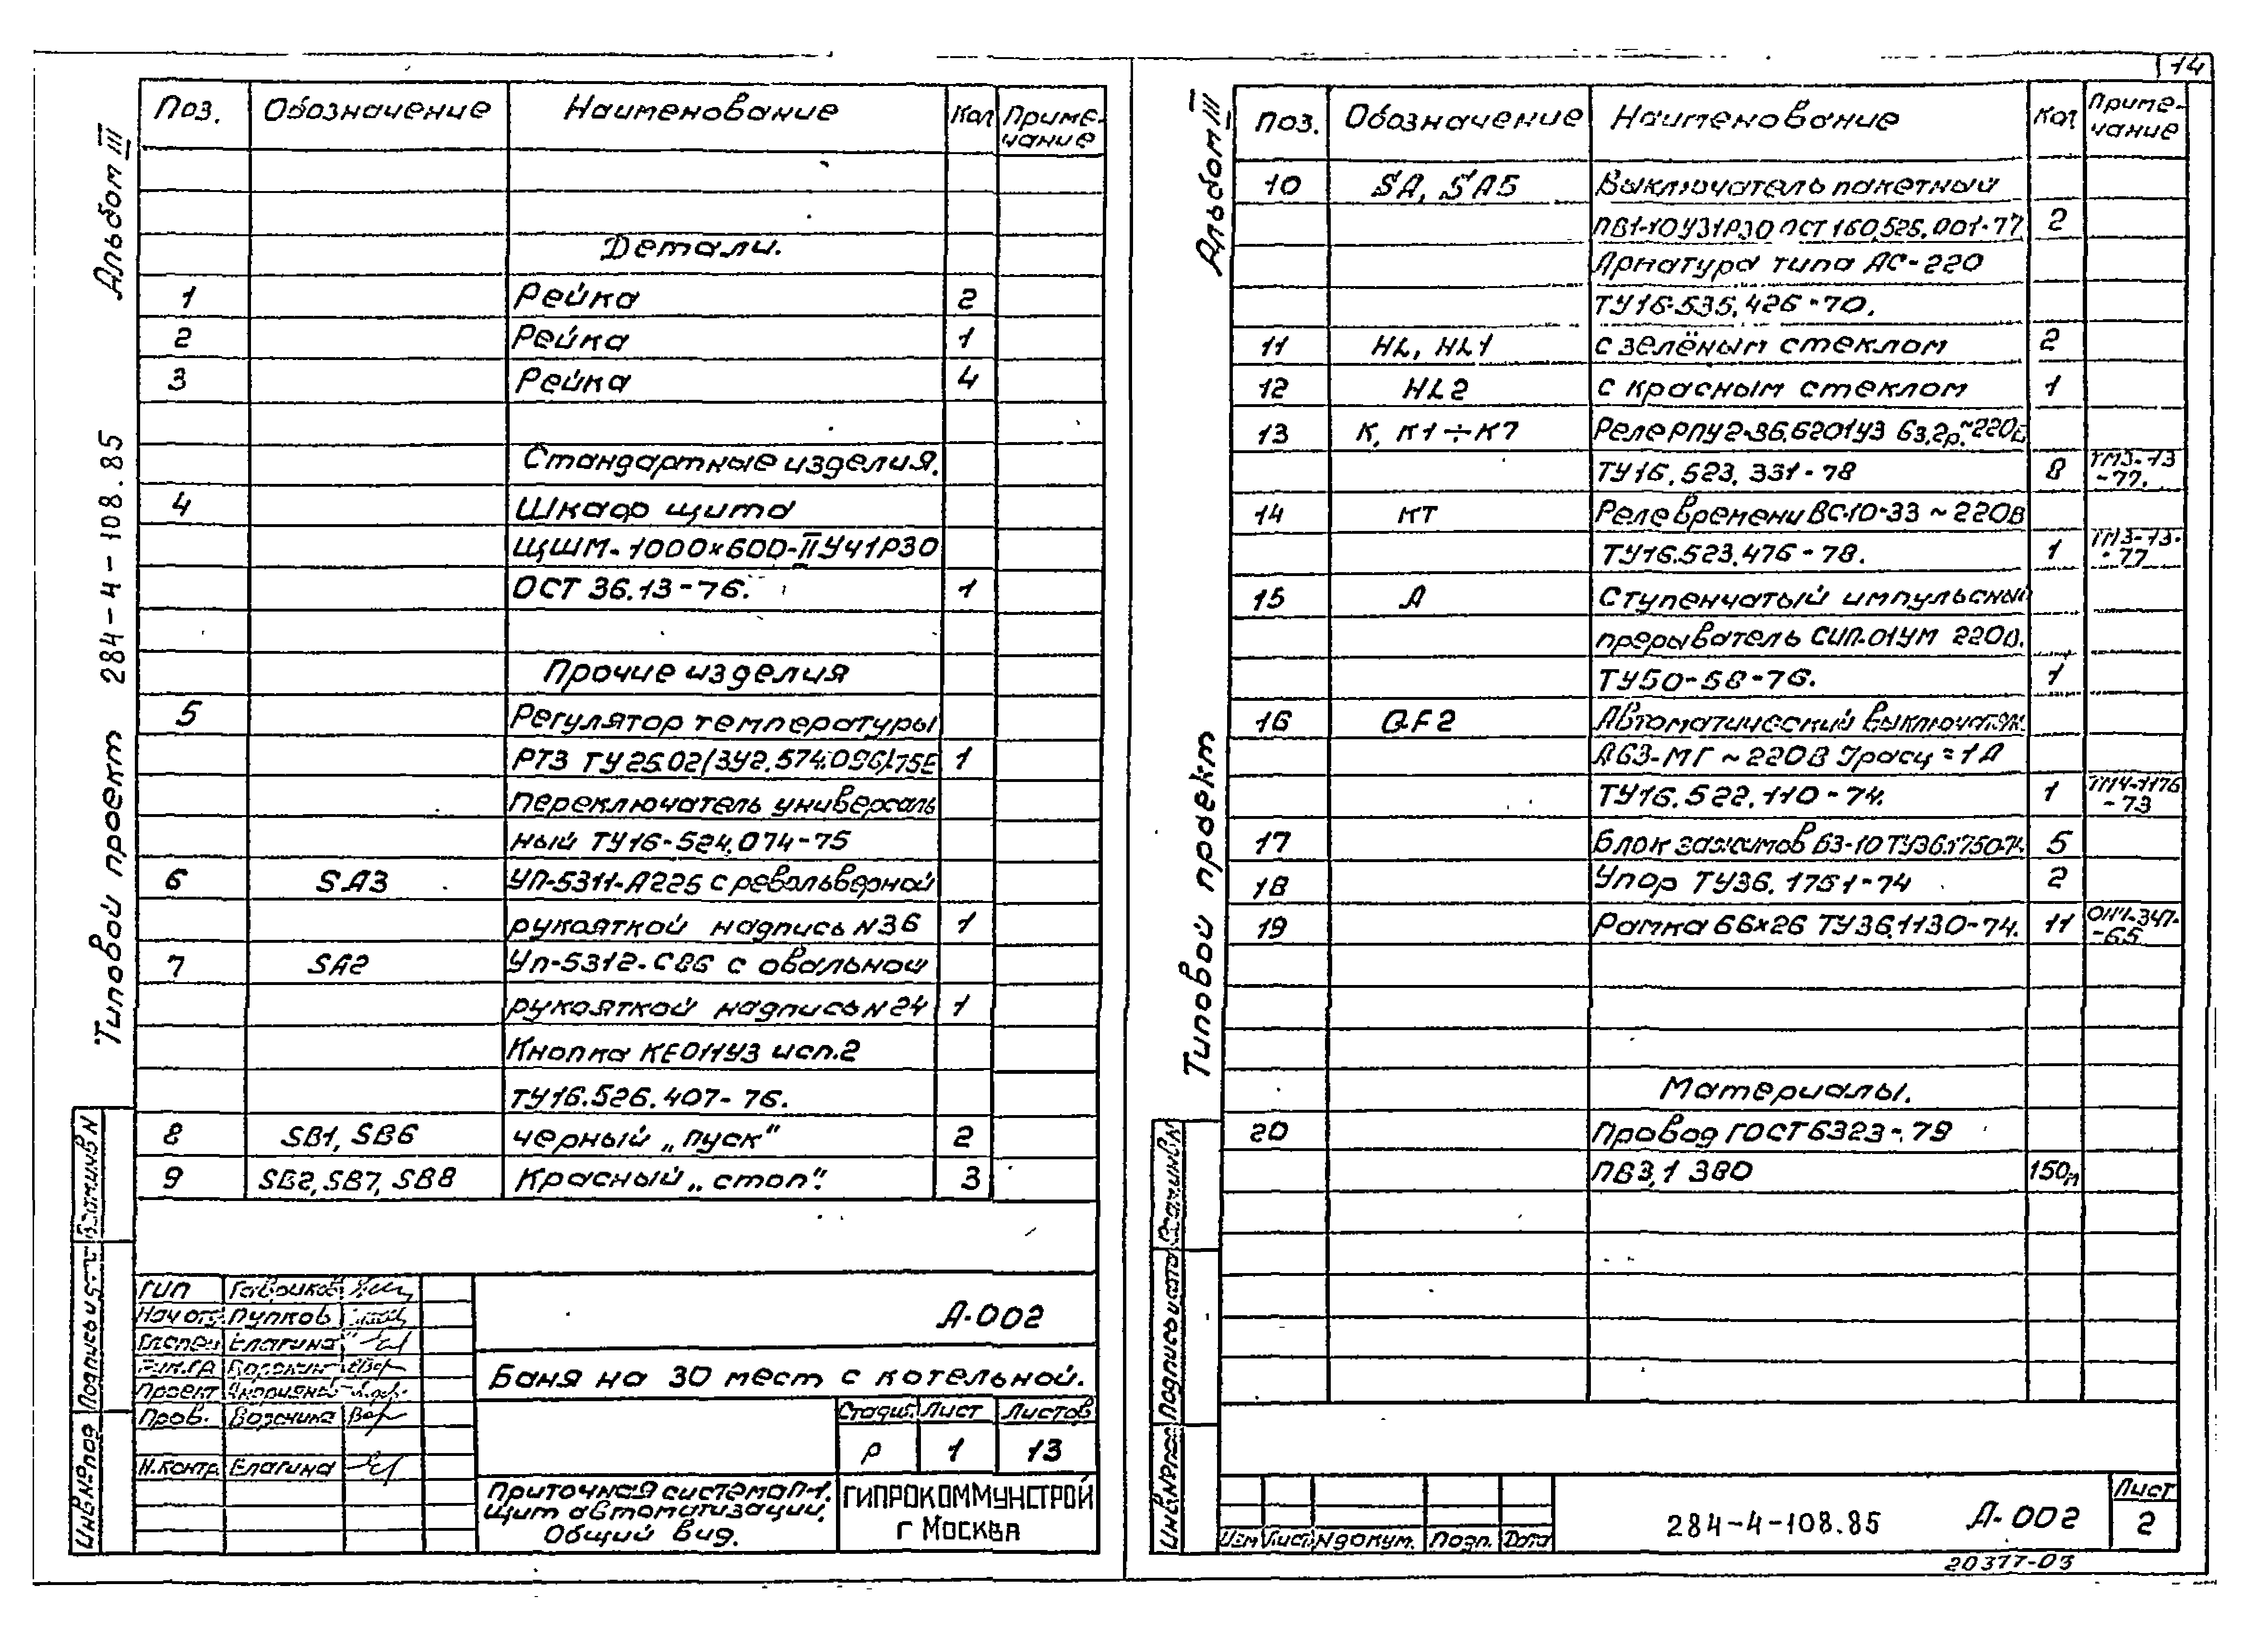 14
Альбом III
Типовой проект 284-4-108.85
Поз. Обозначение Наименование Кол Приме-
чание
Детали.
1 Рейка 2
2 Рейка 1
3 Рейка 4
Стандартные изделия.
4 Шкаф щита
ЩШМ-1000×600-IIУЧ1Р30
ОСТ 36.13-76. 1
Прочие изделия
5 Регулятор температуры
РТ3 ТУ25.02/3У2.574.096/-75Е 1
Переключатель универсаль
ный ТУ16-524.074-75
6 SA3 УП-5311-А225 с револьверной
рукояткой надпись N36 1
7 SA2 УП-5312-С86 с овальной
рукояткой надпись N24 1
Кнопка КЕ011У3 исп.2
ТУ16.526.407-76.
8 SB1, SB6 черный „пуск" 2
9 SB2, SB7, SB8 Красный „стоп". 3
ГИП Гавриков
Нач отд Пупков
Гл спец Елагина
Рук.гр
Проект
Пров.
Н.контр. Елагина
А-002
Баня на 30 мест с котельной.
Стадия Лист Листов
Р 1 13
Приточная система П-1.
Щит автоматизации.
Общий вид.
ГИПРОКОММУНСТРОЙ
г Москва
Инв№под Подпись и дата Взам.инв N
Альбом III
Типовой проект
Поз. Обозначение Наименование Кол Приме-
чание
10 SA, SA5 Выключатель пакетный
ПВ1-10У31Р30 ОСТ 160.526.001-77 2
Арматура типа АС-220
ТУ16-535.426-70.
11 HL, HL1 с зелёным стеклом 2
12 HL2 с красным стеклом 1
13 К, К1÷К7 Реле РПУ2-36.6201У3 6з,2р.~220В
ТУ16.523.331-78 8 ТМ3-13
-77.
14 КТ Реле времени ВС-10-33 ~220В
ТУ16.523.476-78. 1 ТМ3-13-
-77
15 А Ступенчатый импульсный
прерыватель СИП-01УМ 220в.
ТУ50-58-76. 1
16 QF2 Автоматический выключатель
А63-МГ ~220В Iрасц=1А
ТУ16.522.110-74. 1 ТМ4-1176
-73
17 Блок зажимов БЗ-10 ТУ36.1750-74. 5
18 Упор ТУ36.1751-74 2
19 Рамка 66×26 ТУ36.1130-74. 11
-65
Материалы.
20 Провод ГОСТ 6323-79
ПВ3,1 380 150м
Изм Лист N докум. Подп. Дата
284-4-108.85 А-002
Лист
2
Инв№под Подпись и дата Взам.инв N
20377-03